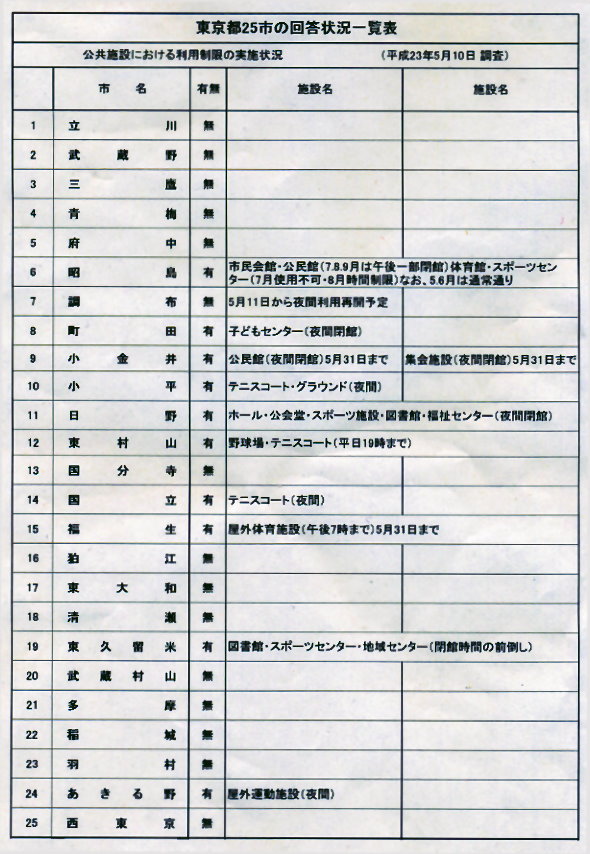 東京都25市の回答状況一覧表
公共施設における利用制限の実施状況 (平成23年5月10日 調査)
市 名 有無 施設名 施設名
1 立川 無
2 武蔵野 無
3 三鷹 無
4 青梅 無
5 府中 無
6 昭島 有 市民会館・公民館(7.8.9月は午後一部閉館)体育館・スポーツセン
ター(7月使用不可・8月時間制限)なお、5.6月は通常通り
7 調布 無 5月11日から夜間利用再開予定
8 町田 有 子どもセンター(夜間閉館)
9 小金井 有 公民館(夜間閉館)5月31日まで 集会施設(夜間閉館)5月31日まで
10 小平 有 テニスコート・グラウンド(夜間)
11 日野 有 ホール・公会堂・スポーツ施設・図書館・福祉センター(夜間閉館)
12 東村山 有 野球場・テニスコート(平日19時まで)
13 国分寺 無
14 国立 有 テニスコート(夜間)
15 福生 有 屋外体育施設(午後7時まで)5月31日まで
16 狛江 無
17 東大和 無
18 清瀬 無
19 東久留米 有 図書館・スポーツセンター・地域センター(閉館時間の前倒し)
20 武蔵村山 無
21 多摩 無
22 稲城 無
23 羽村 無
24 あきる野 有 屋外運動施設(夜間)
25 西東京 無